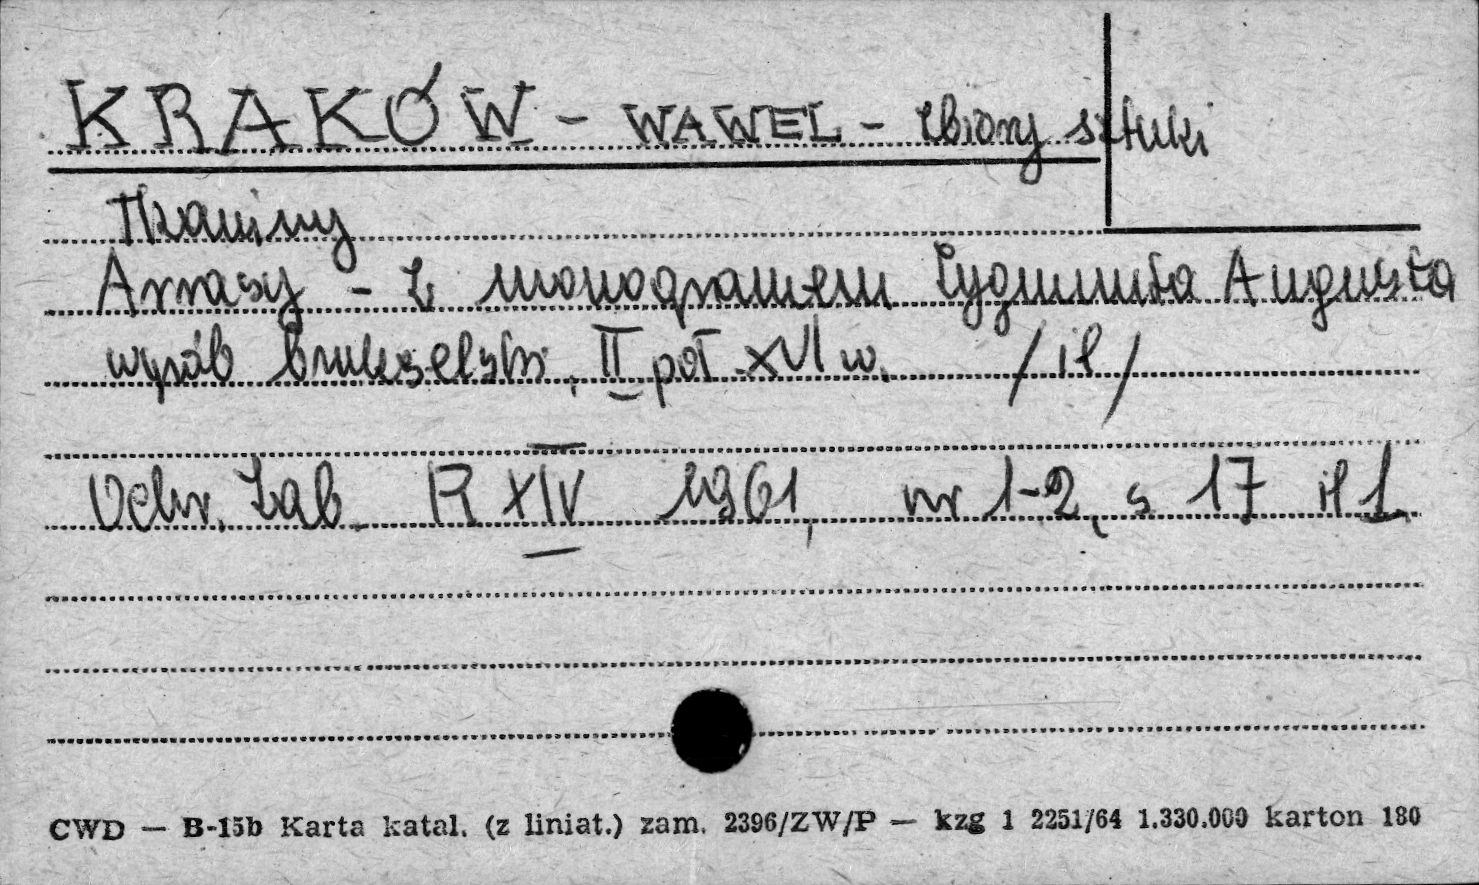 KRAKÓW - WAWEL - zbiory sztuki
Tkaniny
Arrasy - z monogramem Zygmunta Augusta
wyrób brukselski, II poł XVI w. /il/
Ochr. Zab. R XIV 1961, nr 1-2, s 17 il 1.
CWD — B-15b Karta katal. (z liniat.) zam. 2396/ZW/P — kzg 1 2251/64 1.330.000 karton 180